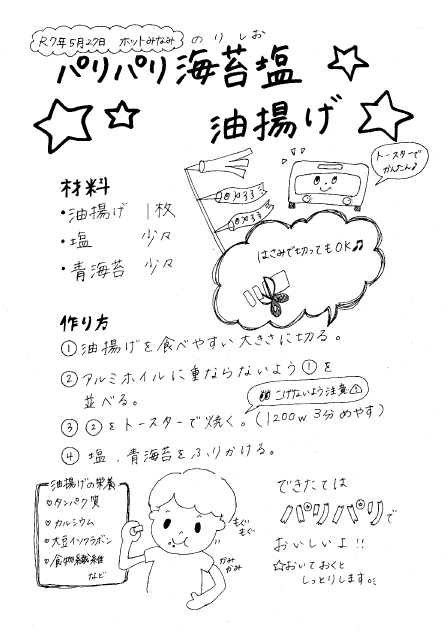 R7年5月27日 ホットみなみ
のりしお
パリパリ海苔塩
油揚げ
トースターで
かんたん♪
材料
・油揚げ 1枚
・塩 少々
・青海苔 少々
はさみで切ってもOK♫
作り方
①油揚げを食べやすい大きさに切る。
②アルミホイルに重ならないよう①を
並べる。
こげないよう注意
③②をトースターで焼く。(1200w3分めやす)
④塩、青海苔をふりかける。
油揚げの栄養
♡タンパク質
♡カルシウム
♡大豆イソフラボン
♡食物繊維
など
もぐ
もぐ
かみ
かみ
できたては
パリパリで
おいしいよ!!
☆おいておくと
しっとりします。